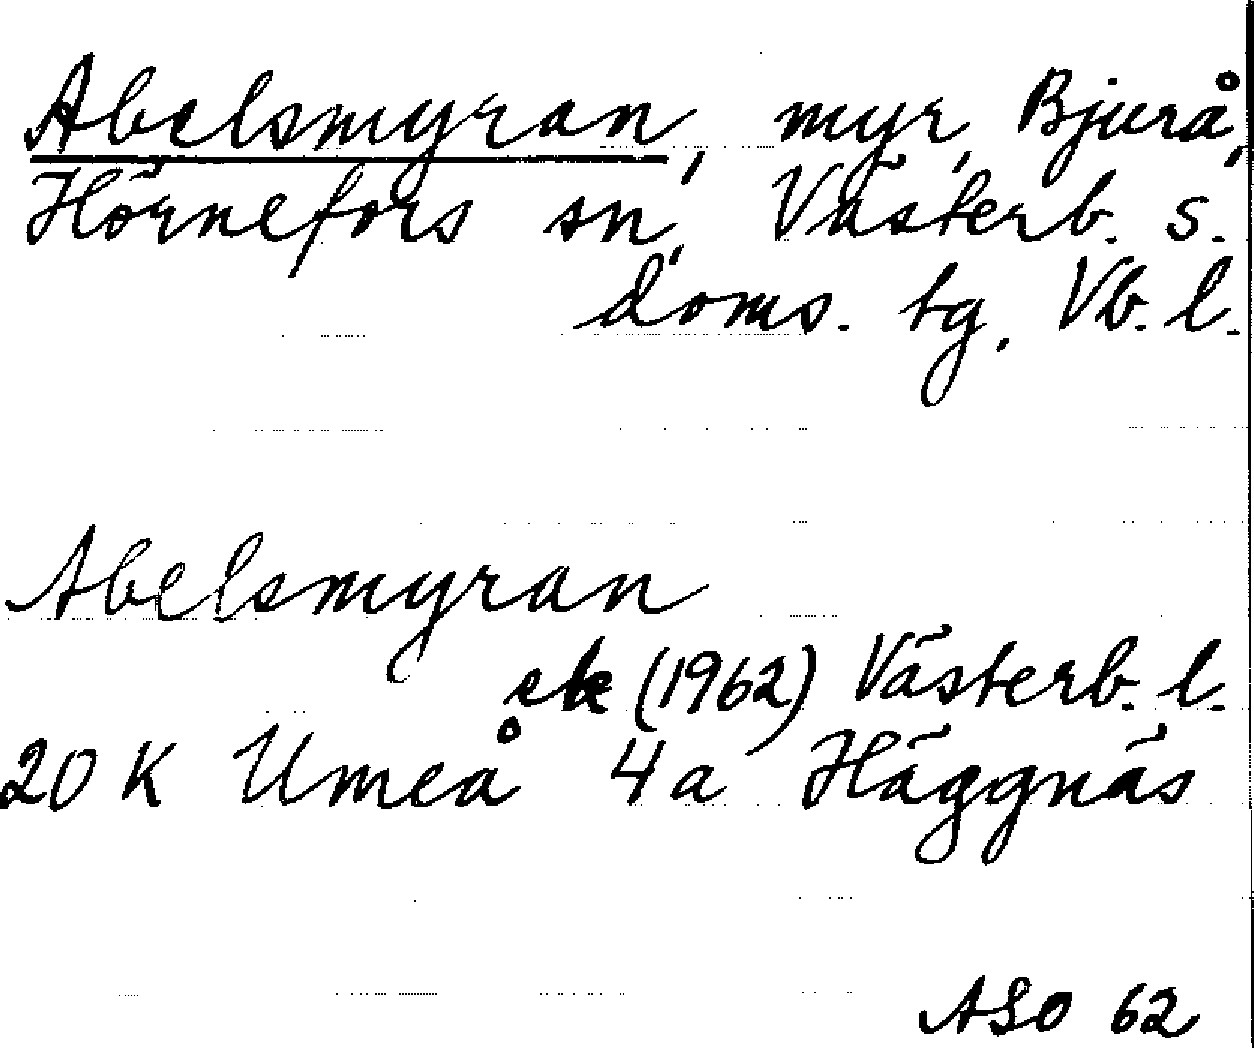 Abelsmyran, myr, Bjurå,
Hörnefors sn, Västerb. s.
doms. tg, Vb. l.
Abelsmyran
ek (1962) Västerb. l.
20 K Umeå 4a Häggnäs
ASO 62